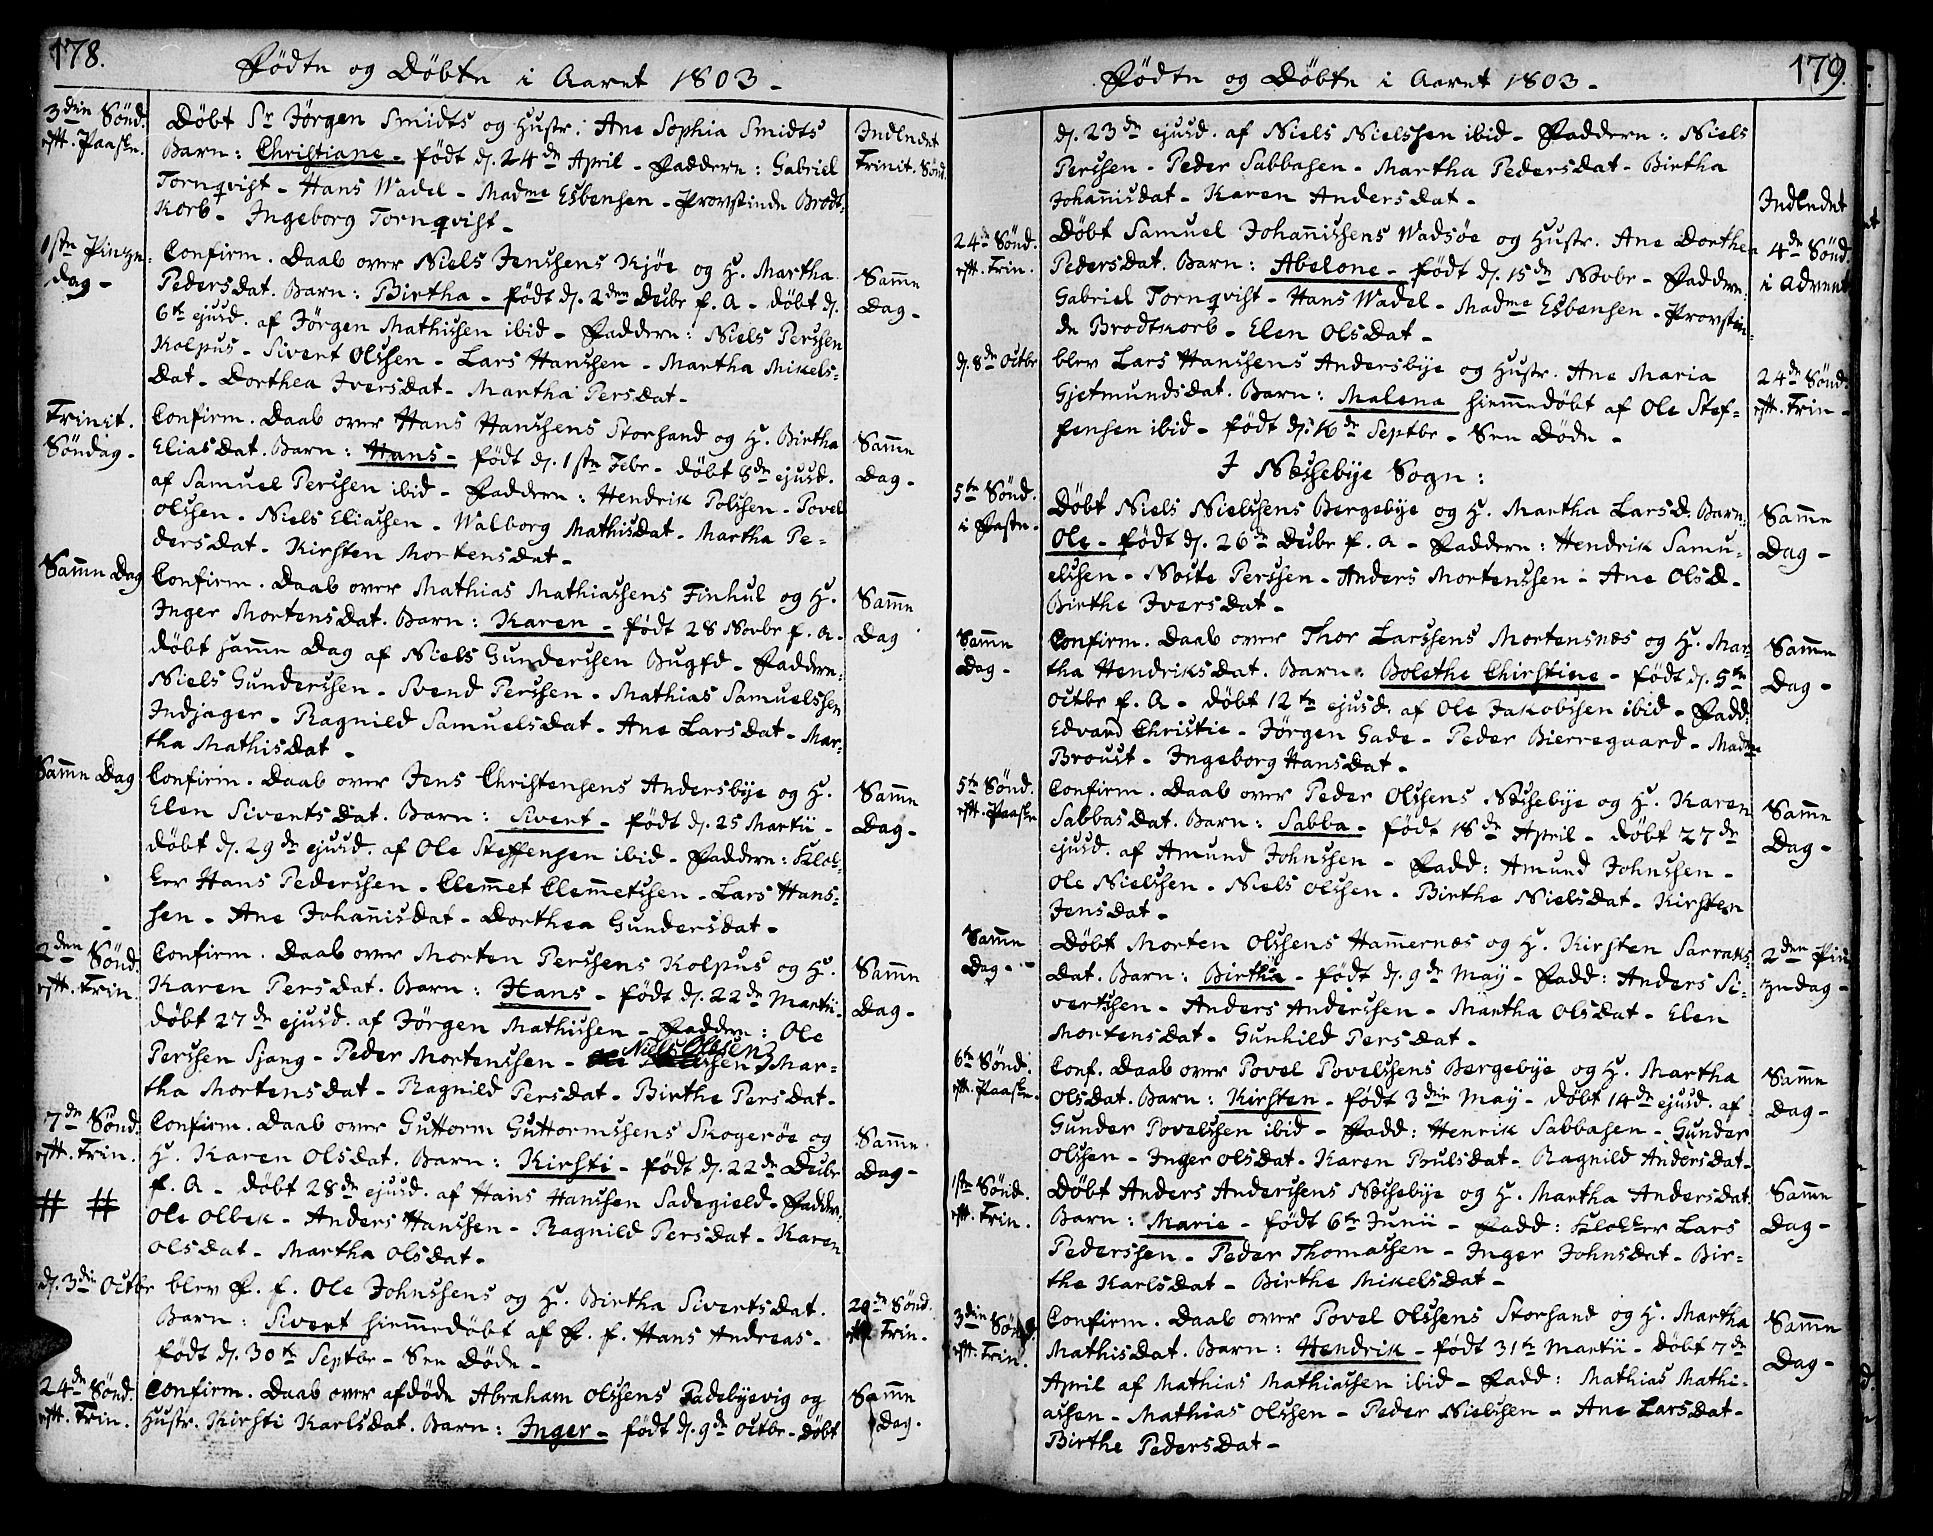 178.
Fødte og Døbte i Aaret 1803 -
3die Sønd.
eft. Paaske.
Døbt Sr Jörgen Smidts og Hustr. Ane Sophia Smidts
Barn: Christiane - født d. 24de April - Faddere: Gabriel
Tornqvist - Hans Wadel - Madme Esbensen - Provstinde Brodt-
korb - Ingeborg Tornqvist -
Indledet
Trinit. Sønd.
1ste Pintze
dag -
Confirm. Daab over Niels Jenssens Kjøe og H. Martha
Pedersdat. Barn: Birtha - født d. 2den Decbr f. A - døbt d.
6te ejusd. af Jörgen Mathissen ibid - Faddere: Niels Perssen
Kolpus - Sivert Olssen - Lars Hanssen - Martha Mikels-
dat - Dorthea Iversdat - Martha Persdat -
Samme
Dag -
Trinit.
Søndag -
Confirm. Daab over Hans Hanssens Storsand og H. Birtha
Eliasdat. Barn: Hans - født d. 1ste Febr - døbt 8de ejusd.
af Samuel Perssen ibid - Faddere: Hendrik Polssen - Povel
Olssen - Niels Eliassen - Walborg Mathisdat - Martha Pe-
dersdat - Kirsten Mortensdat -
Samme
Dag -
Samme Dag
Confirm. Daab over Mathias Mathiassens Finhul og H.
Inger Mortensdat. Barn: Karen - født 28 Novbr f. A.
døbt samme Dag af Niels Gunderssen Bugfd - Faddere:
Niels Gunderssen - Svend Perssen - Mathias Samuelssen
Indjager - Ragnild Samuelsdat - Ane Larsdat - Mar-
tha Mathisdat -
Samme
Dag
Samme Dag
Confirm. Daab over Jens Christensens Andersbye og H.
Elen Sivertsdat. Barn: Sivert - født d. 25 Martii -
døbt d. 29de ejusd. af Ole Steffensen ibid - Faddere: Klok-
ker Hans Pederssen - Clemmet Clemmetssen - Lars Hans-
sen - Ane Johannisdat - Dorthea Gundersdat -
Samme
Dag -
2den Sønd.
eft. Trin.
Confirm. Daab over Morten Perssens Kolpus og H.
Karen Persdat. Barn: Hans - født d. 22de Martii
døbt 27de ejusd. af Jörgen Mathissen - Faddere: Ole
Perssen Sjang - Peder Mortenssen - Niels Olesen - Mar-
tha Mortensdat - Ragnild Persdat - Birthe Persdat -
Samme
Dag -
7de Sønd.
eft. Trin.
# #
Confirm. Daab over Guttorm Guttormssens Skogerøe og
H. Karen Olsdat. Barn: Kirsti - født d. 22de Decbr
f. A - døbt 28de ejusd. af Hans Hanssen Sadegield - Faddere:
Ole Olbek - Anders Hanssen - Ragnild Persdat - Karen
Olsdat - Martha Olsdat -
Samme
Dag -
d. 3die Octbr
blev F. f. Ole Johnssens og H. Birtha Sivertsdat.
Barn: Sivert hiemmedøbt af F. f. Hans Andreas -
født d. 30te Septbr - Sen Døde -
eft. Trin.
24de Sønd.
eft. Trin.
Confirm. Daab over afdøde Abraham Olssens Padebyevig og
Hustr. Kirsti Karlsdat. Barn: Inger - født d. 9de Octbr - døbt
Samme
Dag.
179.
Fødte og Døbte i Aaret 1803 -
d. 23de ejusd. af Niels Nielssen ibid - Faddere: Niels
Perssen - Peder Sabbasen - Martha Pedersdat - Birtha
Johannisdat - Karen Andersdat -
24de Sønd.
eft. Trin.
Døbt Samuel Johannissens Wadsøe og Hustr. Ane Dorthea
Pedersdat. Barn: Abelone - født d. 15de Novbr - Faddere:
Gabriel Tornqvist - Hans Wadel - Madme Esbensen - Provstin-
de Brodtkorb - Elen Olsdat -
Indledet
4de Sønd.
i Advent
d. 8de Octbr
blev Lars Hanssens Andersbye og Hustr. Ane Maria
Gjetmundsdat. Barn: Malena hiemmedøbt af Ole Stef-
fensen ibid - født d. 16de Septbr - Sen Døde -
24de Sønd.
eft. Trin -
I Næssebye Sogn:
5te Sønd.
i Faste.
Døbt Niels Nielssens Bergebye og H. Martha Larsd. Barn:
Ole - født d. 26de Decbr f. A - Faddere: Hendrik Samu-
elssen - Noste Perssen - Anders Mortenssen - Ane Olsd -
Birthe Iversdat -
Samme
Dag -
Samme
Dag -
Confirm. Daab over Thor Larssens Mortensnæs og H. Mar-
tha Hendriksdat. Barn: Bolethe Chirstine - født d. 5te
Octbr f. A - døbt 12te ejusd. af Ole Jakobssen ibid - Fadd:
Edvard Christie - Jörgen Gade - Peder Bierregaard - Madme
Broust - Ingeborg Hansdat -
Samme
Dag -
5te Sønd.
eft. Paaske
Confirm. Daab over Peder Olssens Næssebye og H. Karen
Sabbasdat. Barn: Sabba - født 18de April - døbt 27de
ejusd. af Amund Johnssen - Fadd: Amund Johnssen -
Ole Nielssen - Niels Olssen - Birthe Nielsdat - Kirsten
Jensdat -
Samme
Dag -
Samme
Dag -
Døbt Morten Olssens Hammernæs og H. Kirsten Sarraks-
dat. Barn: Birtha - født d. 9de May - Fadd: Anders Si-
vertssen - Anders Anderssen - Martha Olsdat - Elen
Mortensdat - Gunhild Persdat -
2den Pin
zedag -
6te Sønd.
eft. Paaske.
Conf. Daab over Povel Povelssens Bergebye og H. Martha
Olsdat. Barn: Kirsten - født 3die May - døbt 14de ejusd. af
Gunder Povelssen ibid - Fadd: Henrik Sabbasen - Gunder
Olssen - Inger Olsdat - Karen Pulsdat - Ragnild Andersdat -
Samme
Dag -
1ste Sønd.
eft. Trin.
Døbt Anders Anderssens Næssebye og H. Martha Andersdat.
Barn: Marie - født 6te Junii - Fadd: Klokker Lars
Pederssen - Peder Thomassen - Inger Johnsdat - Bir-
the Karlsdat - Birthe Mikelsdat -
Samme
Dag -
3die Sønd.
eft. Trin.
Confirm. Daab over Povel Olssens Storsand og H. Martha
Mathisdat. Barn: Hendrik - født 31te Martii - døbt 7de
April af Mathias Mathiassen ibid - Fadd: Mathias Mathi-
assen - Mathias Olssen - Peder Nielssen - Ane Larsdat -
Birthe Pedersdat -
Samme
Dag -